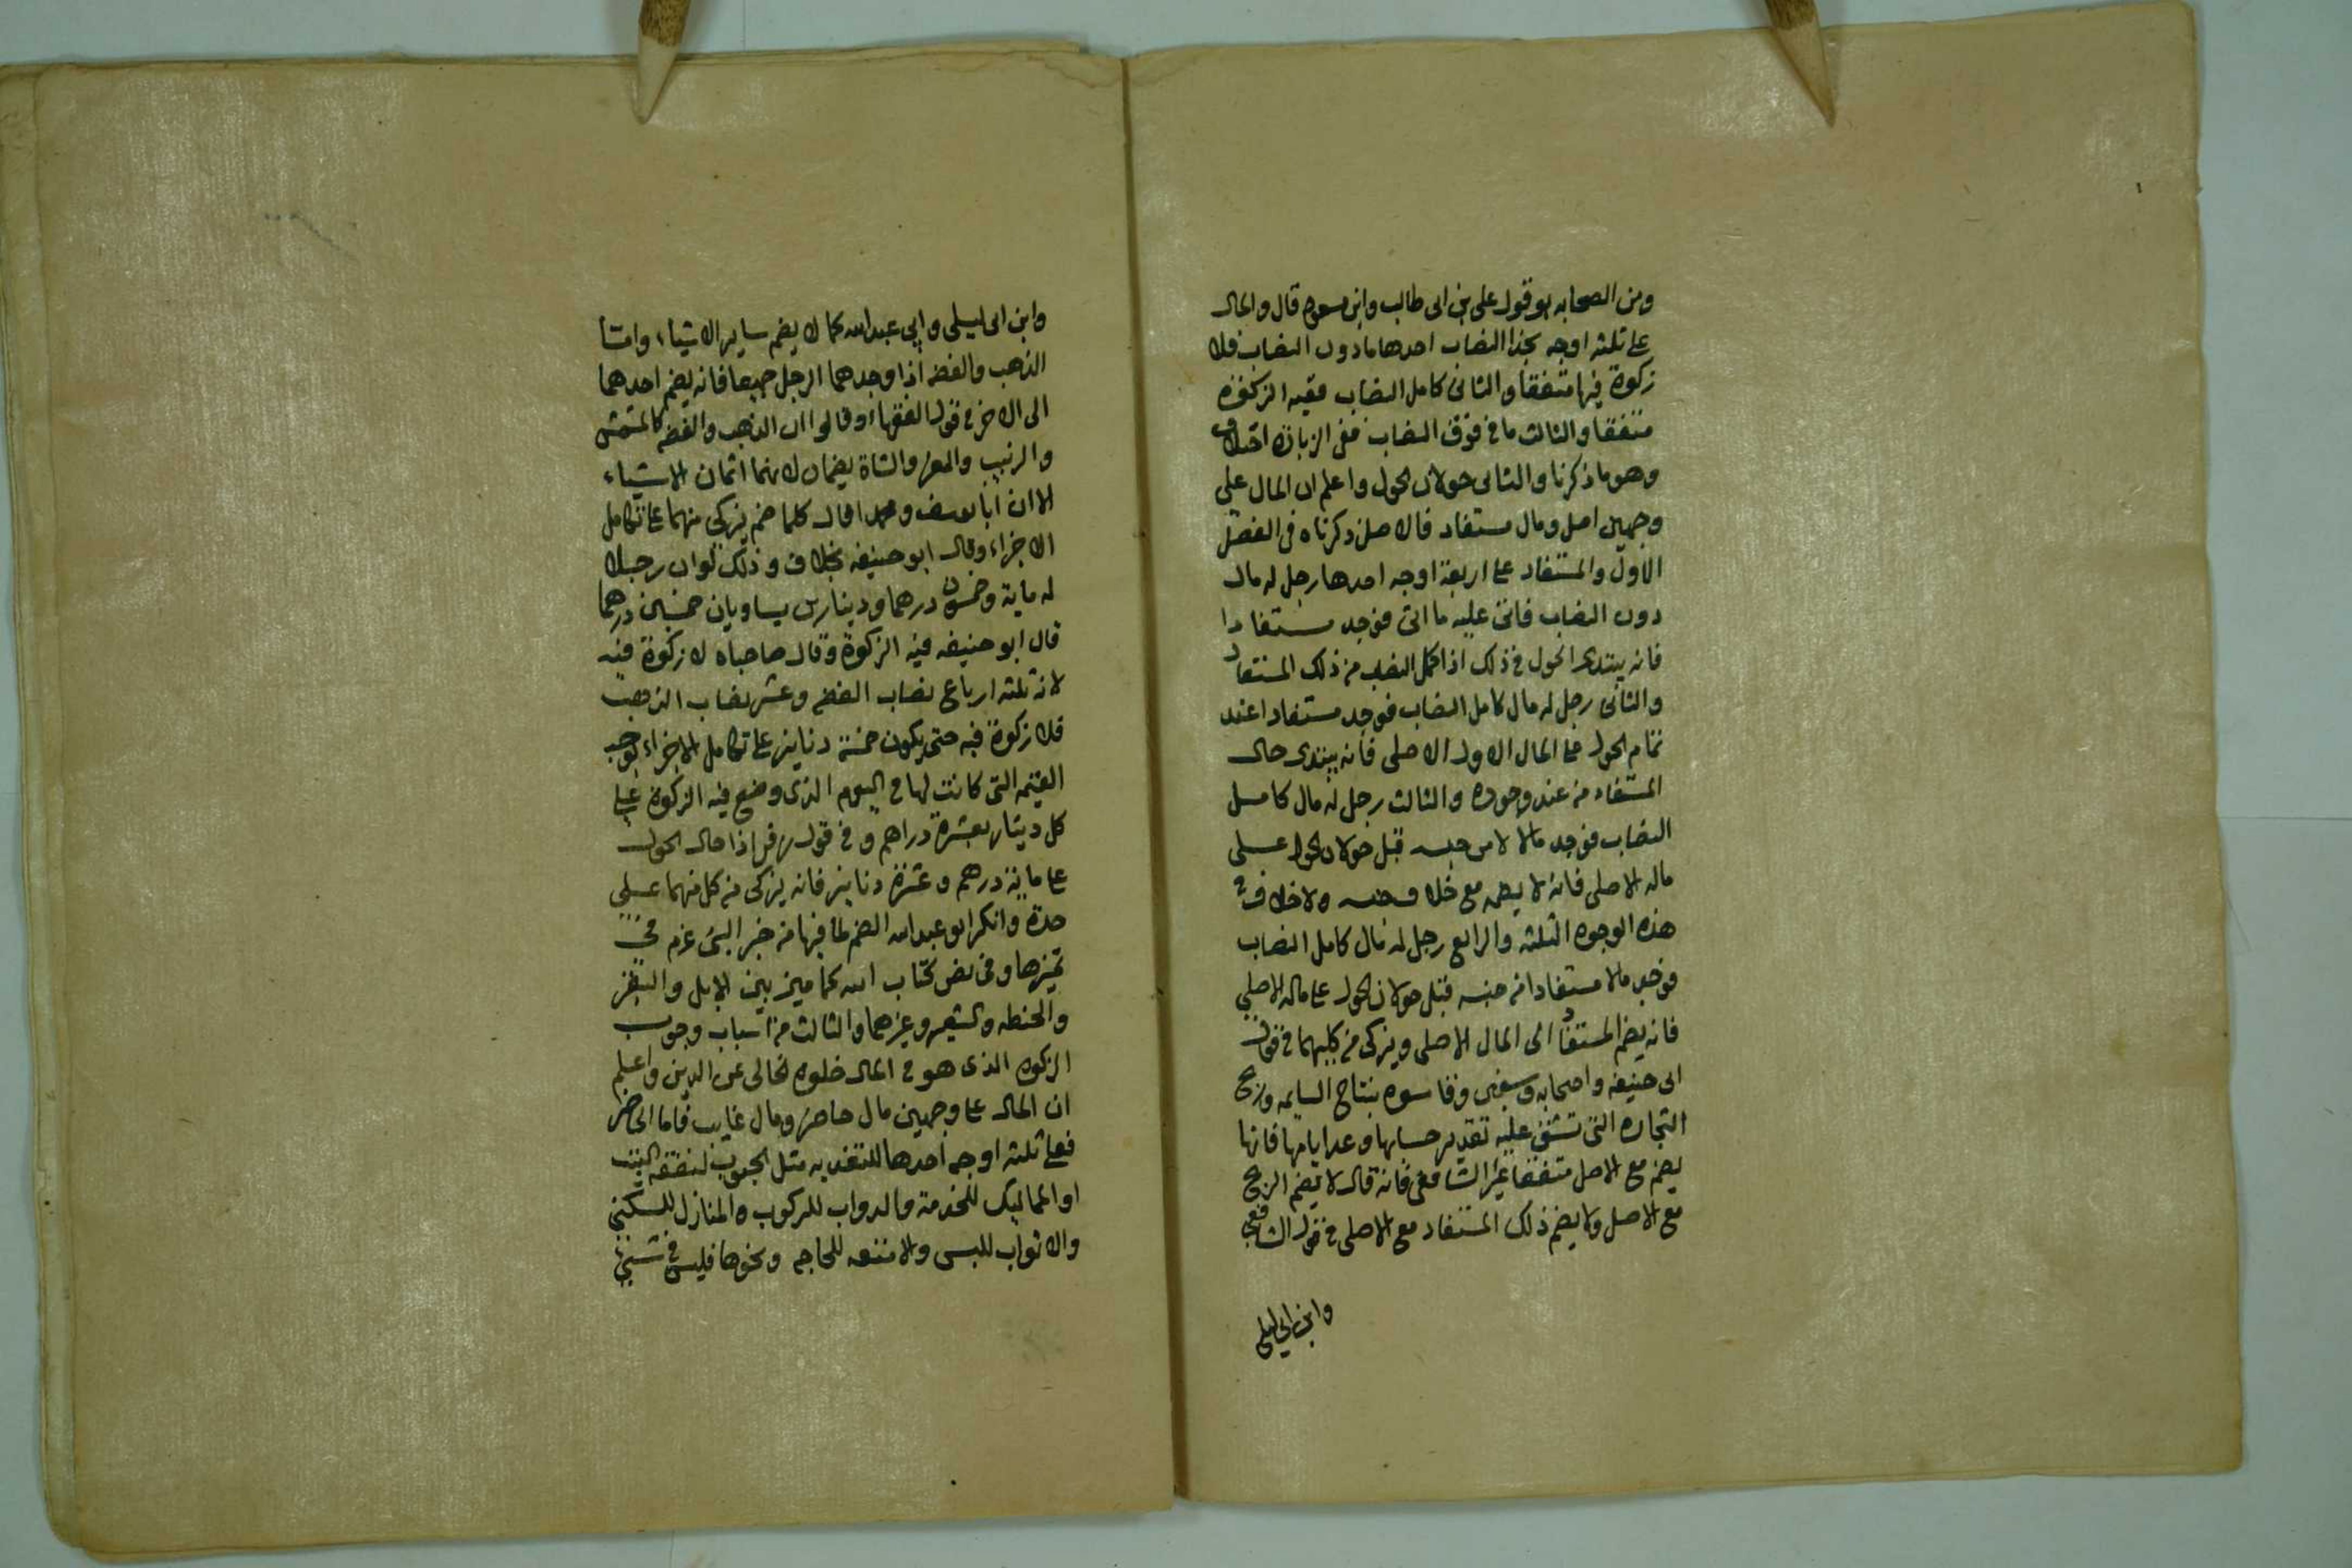 ومن الصحابه هو قول على بن ابى طالب وابن مسعود قال والمال
على ثلثه اوجه بحذا النصاب احدها مادون النصاب فلا
زكوة فيها متفقا والثانى كامل النصاب ففيه الزكوة
متفقا والثالث ما فوق النصاب ففى الزيادة اختلاف
وهو ما ذكرنا والثانى حولان الحول واعلم ان المال على
وجهين اصل ومال مستفاد فالاصل ذكرناه فى الفصل
الاول والمستفاد على اربعة اوجه احدها رجل له مال
دون النصاب فاتى عليه ما اتى فوجد مستفادا
فانه يبتدى الحول فى ذلك اذا كمل النصاب من ذلك المستفاد
والثانى رجل له مال كامل النصاب فوجد مستفادا عند
تمام الحول على المال الاول الاصلى فانه يبتدى حال
المستفاد من عند وجوده والثالث رجل له مال كامل
النصاب فوجد مالا لا من جنسه قبل حولان الحول على
ماله الاصلى فانه لا يضمه مع خلاف جنسه ولا خلاف فى
هذه الوجوه الثلثه والرابع رجل له مال كامل النصاب
فوجد مالا مستفادا من جنسه قبل حولان الحول على ماله الاصلي
فانه يضم المستفاد الى المال الاصلى ويزكى من كليهما فى قول
ابى حنيفه واصحابه وسفين وقاسوه بنتاج السايمه وربح
التجاره التى تشق عليه تقدير حسابها وعد ايامها فانها
يضم مع الاصل متفقا غير الشافعى فانه قال لا يضم الربح
مع الاصل ولا يضم ذلك المستفاد مع الاصلى فى قول الشافعي
وابن ابى ليلى
وابن ابى ليلى وابى عبد الله كما لا يضم ساير الاشياء وامتا
الذهب والفضه اذا وجدهما الرجل جميعا فانه يضم احدهما
الى الاخر فى قول الفقهاء وقالوا ان الذهب والفضه كالمشمش
والزبيب والمعز والشاة يضمان لانهما اثمان الاشياء
الا ان ابا يوسف ومحمدا قال كلما ضم يزكى منهما على تكامل
الاجزاء وقال ابو حنيفه بخلاف وذلك لو ان رجلا
له ماية وخمسون درهما ودينارين يساويان خمسين درهما
قال ابو حنيفه فيه الزكوة وقال صاحباه لا زكوة فيه
لانه ثلثه ارباع نصاب الفضه وعشر نصاب الذهب
فلا زكوة فيه حتى يكون خمسة دنانير على تكامل الاجزاء لوجب
القيمه التى كانت لها فى اليوم الذى وضع فيه الزكوة على
كل دينار بعشرة دراهم وفى قول زفر اذا حال الحول
على ماية درهم وعشرة دنانير فانه يزكى من كل منهما على
حدة وانكر ابو عبد الله الضم لما فيها من خبر النبى عم فى
تميزها وفى نص كتاب الله كما ميز بين الابل والبقر
والحنطه والشعير وغيرهما والثالث من اسباب وجوب
الزكوه الذى هو فى المال خلوه الخالى عن الدين واعلم
ان المال على وجهين مال حاضر ومال غايب فاما الحاضر
فعلى ثلثه اوجه احدها للتغذيه مثل الحبوب لنفقه البيت
او المماليك للخدمة والدواب للركوب والمنازل للسكنى
والاثواب للبس والامتعه للحاجه ونحوها فليس فى شيئ